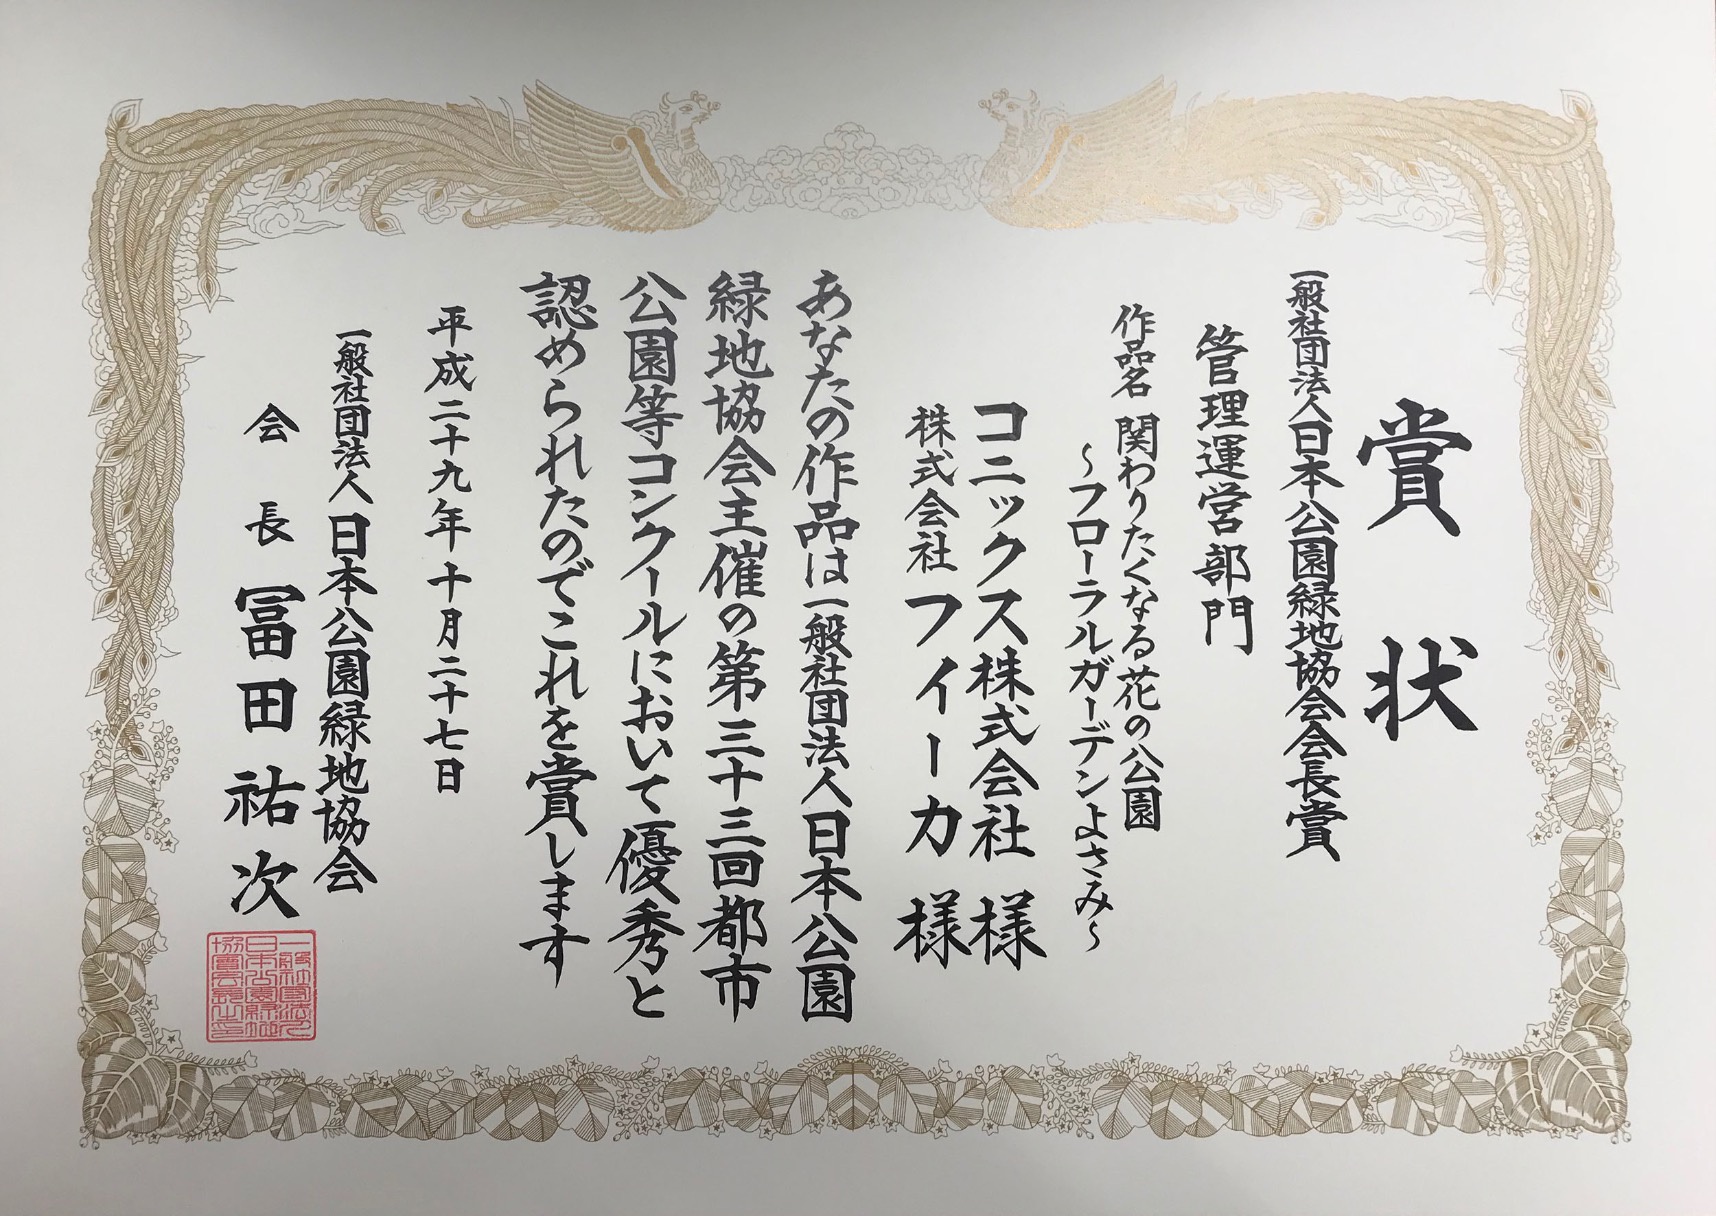 賞状
一般社団法人日本公園緑地協会会長賞
管理運営部門
作品名 関わりたくなる花の公園
～フローラルガーデンよさみ～
コニックス株式会社 様
株式会社フィーカ 様
あなたの作品は一般社団法人日本公園
緑地協会主催の第三十三回都市
公園等コンクールにおいて優秀と
認められたのでこれを賞します
平成二十九年十月二十七日
一般社団法人日本公園緑地協会
会長 冨田祐次